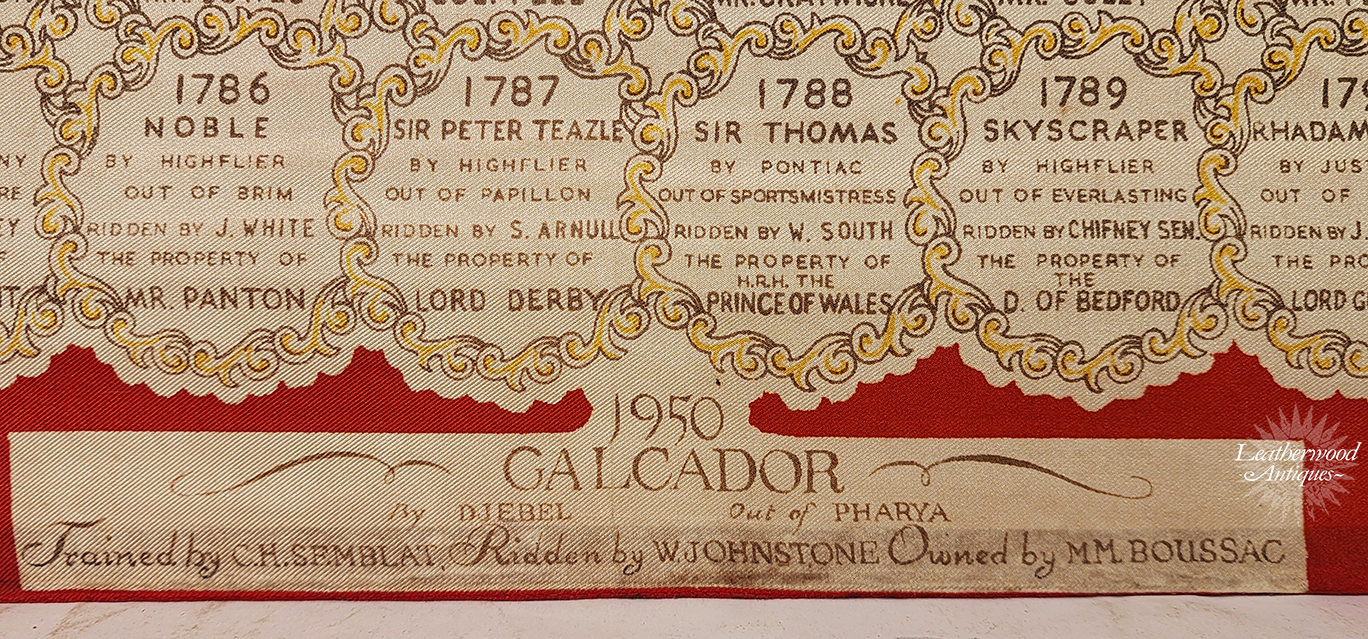 1786
NOBLE
BY HIGHFLIER
OUT OF BRIM
RIDDEN BY J. WHITE
THE PROPERTY OF
MR. PANTON
1787
SIR PETER TEAZLE
BY HIGHFLIER
OUT OF PAPILLON
RIDDEN BY S. ARNULL
THE PROPERTY OF
LORD DERBY
1788
SIR THOMAS
BY PONTIAC
OUT OF SPORTSMISTRESS
RIDDEN BY W. SOUTH
THE PROPERTY OF
H.R.H. THE
PRINCE OF WALES
1789
SKYSCRAPER
BY HIGHFLIER
OUT OF EVERLASTING
RIDDEN BY CHIFNEY SEN.
THE PROPERTY OF
THE
D. OF BEDFORD
BY JUS
OUT OF
RIDDEN BY J.
THE PRO
LORD G
1950
GALCADOR
By DJEBEL Out of PHARYA
Trained by C.H. SEMBLAT, Ridden by W. JOHNSTONE Owned by MM. BOUSSAC
Leatherwood
Antiques~